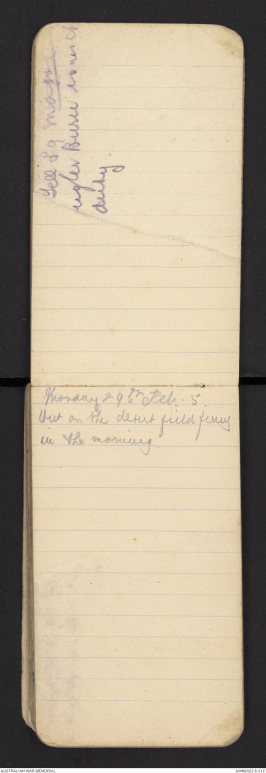 Tell Sg Major
Bugler Burrel is on a
duty
Monday 29th Feb. 5.
Out on the desert field firing
in the morning
AUSTRALIAN WAR MEMORIAL
AWM2022.6.412